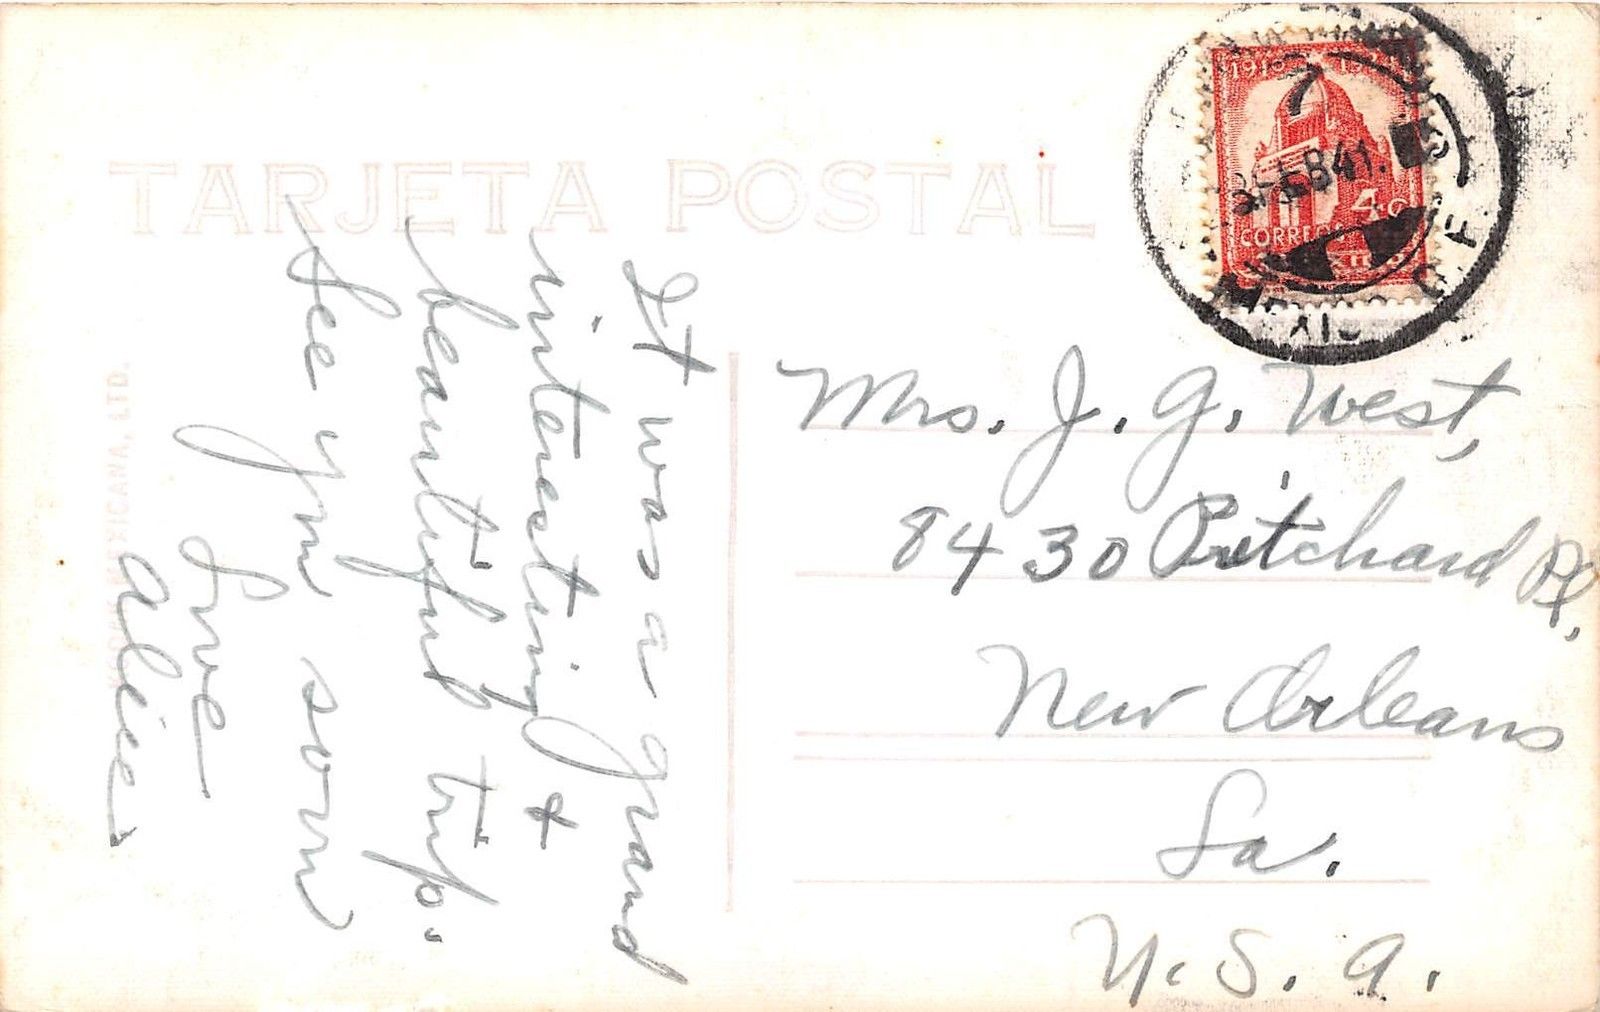 TARJETA POSTAL
1910 1934
7
FEB 41.
4c
CORREOS
MEXICO D.F.
It was a grand
interesting &
beautiful trip.
See you soon
Love
Alice
Mrs. J. G. West,
8430 Pritchard Pl,
New Orleans
La.
U. S. A.
MEXICANA, LTD.